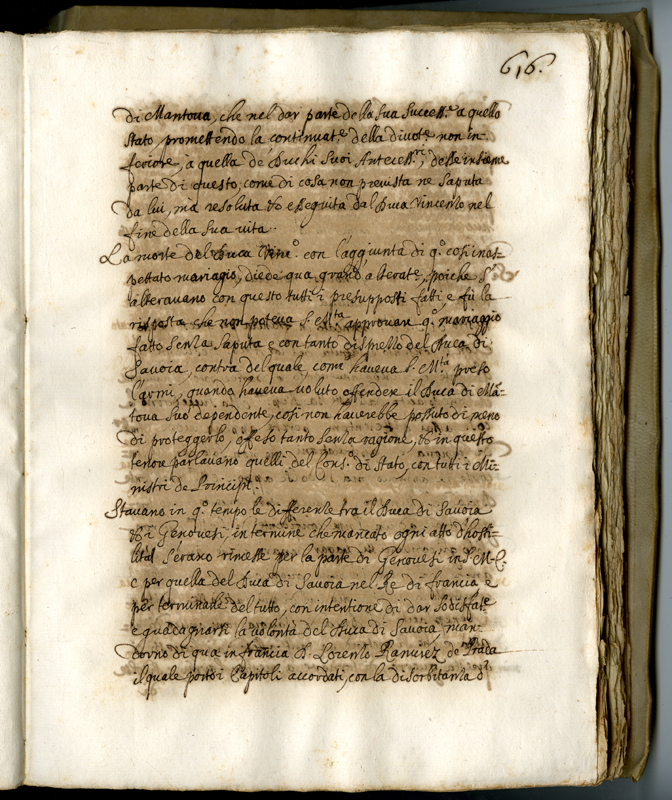 616.
di Mantoua, che nel dar parte della sua Success.e a quello
stato, promettendo la continuat.e della diuot.e non in-
feriore, à quella de' Duchi suoi Antecess.ri, desse insieme
parte di questo, come di cosa non prevista ne saputa
da lui, mà resoluta et eseguita dal Duca Vincenzo nel
fine della sua vita.
La morte del Duca Vinc.o con l'aggiunta di q.o cosi inas-
pettato mariagio, diede qua grand'alterat.e, poiche s'
alterauano con questo tutti i presupposti fatti, e fù la
risposta che non poteua S. M.ta approuar q.o mariaggio
fatto senza saputa e con tanto dispresso del Duca di
Sauoia, contra del quale, come haueua S. M.tà preso
l'armi, quando haueua uoluto offender il Duca di Mã-
toua suo dependente, cosi non hauerebbe possuto di meno
di proteggerlo, offeso tanto senza ragione, et in questo
tenore parlauano quelli del Cons.o di Stato, con tutti i Mi-
nistri de Principi.
Stauano in q.o tempo le differenze tra il Duca di Sauoia
et i Genouesi, in termine che mancato ogni atto d'hosti-
lità s'erano rimesse per la parte di Genouesi in S. M. C.
e per quella del Duca di Sauoia nel Re di francia e
per terminarle del tutto, con intentione di dar sodisfat.e
e guadagnarsi la uolontà del Duca di Sauoia, man-
dorno di qua in francia D. Lorenzo Ramirez de Prada
il quale portò i Capitoli accordati, con la disorbitanza d'